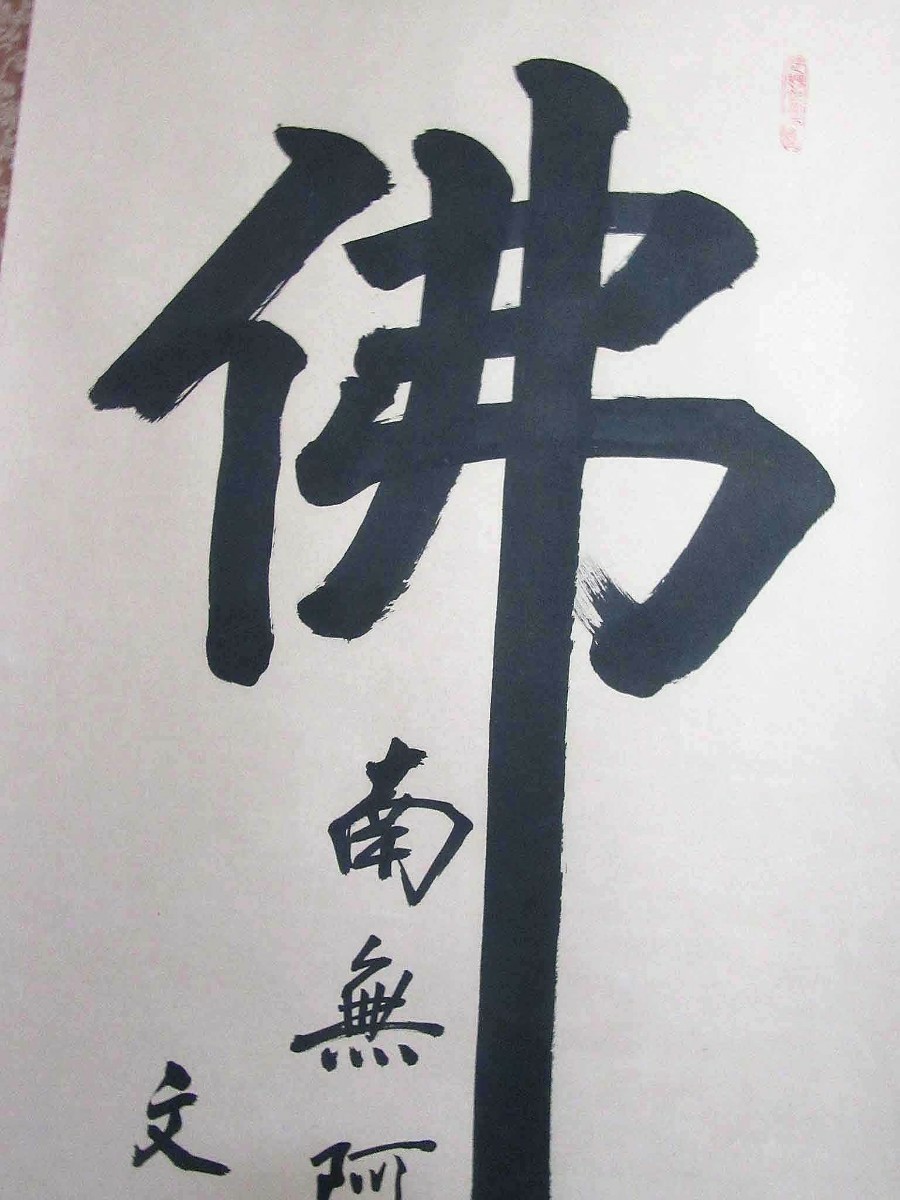 佛
南無阿
文